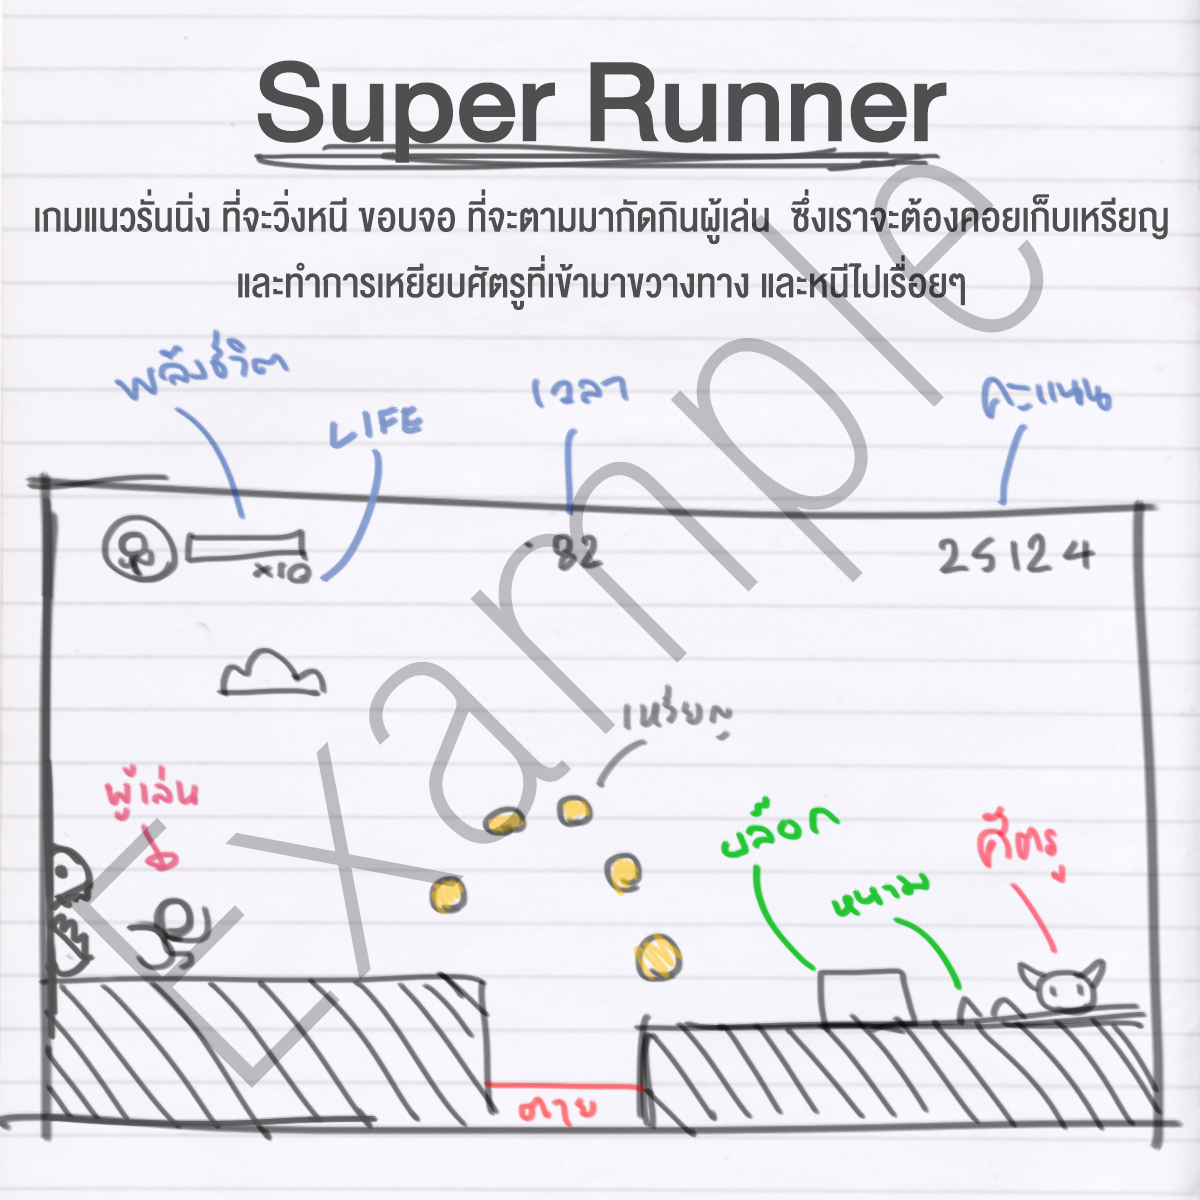 Super Runner
เกมแนวรันนิ่ง ที่จะวิ่งหนี ขอบจอ ที่จะตามมากัดกินผู้เล่น ซึ่งเราจะต้องคอยเก็บเหรียญ
และทำการเหยียบศัตรูที่เข้ามาขวางทาง และหนีไปเรื่อยๆ
พลังชีวิต
LIFE
เวลา
คะแนน
×10
82
25124
เหรียญ
ผู้เล่น
บล๊อก
หนาม
ศัตรู
ตาย
Example